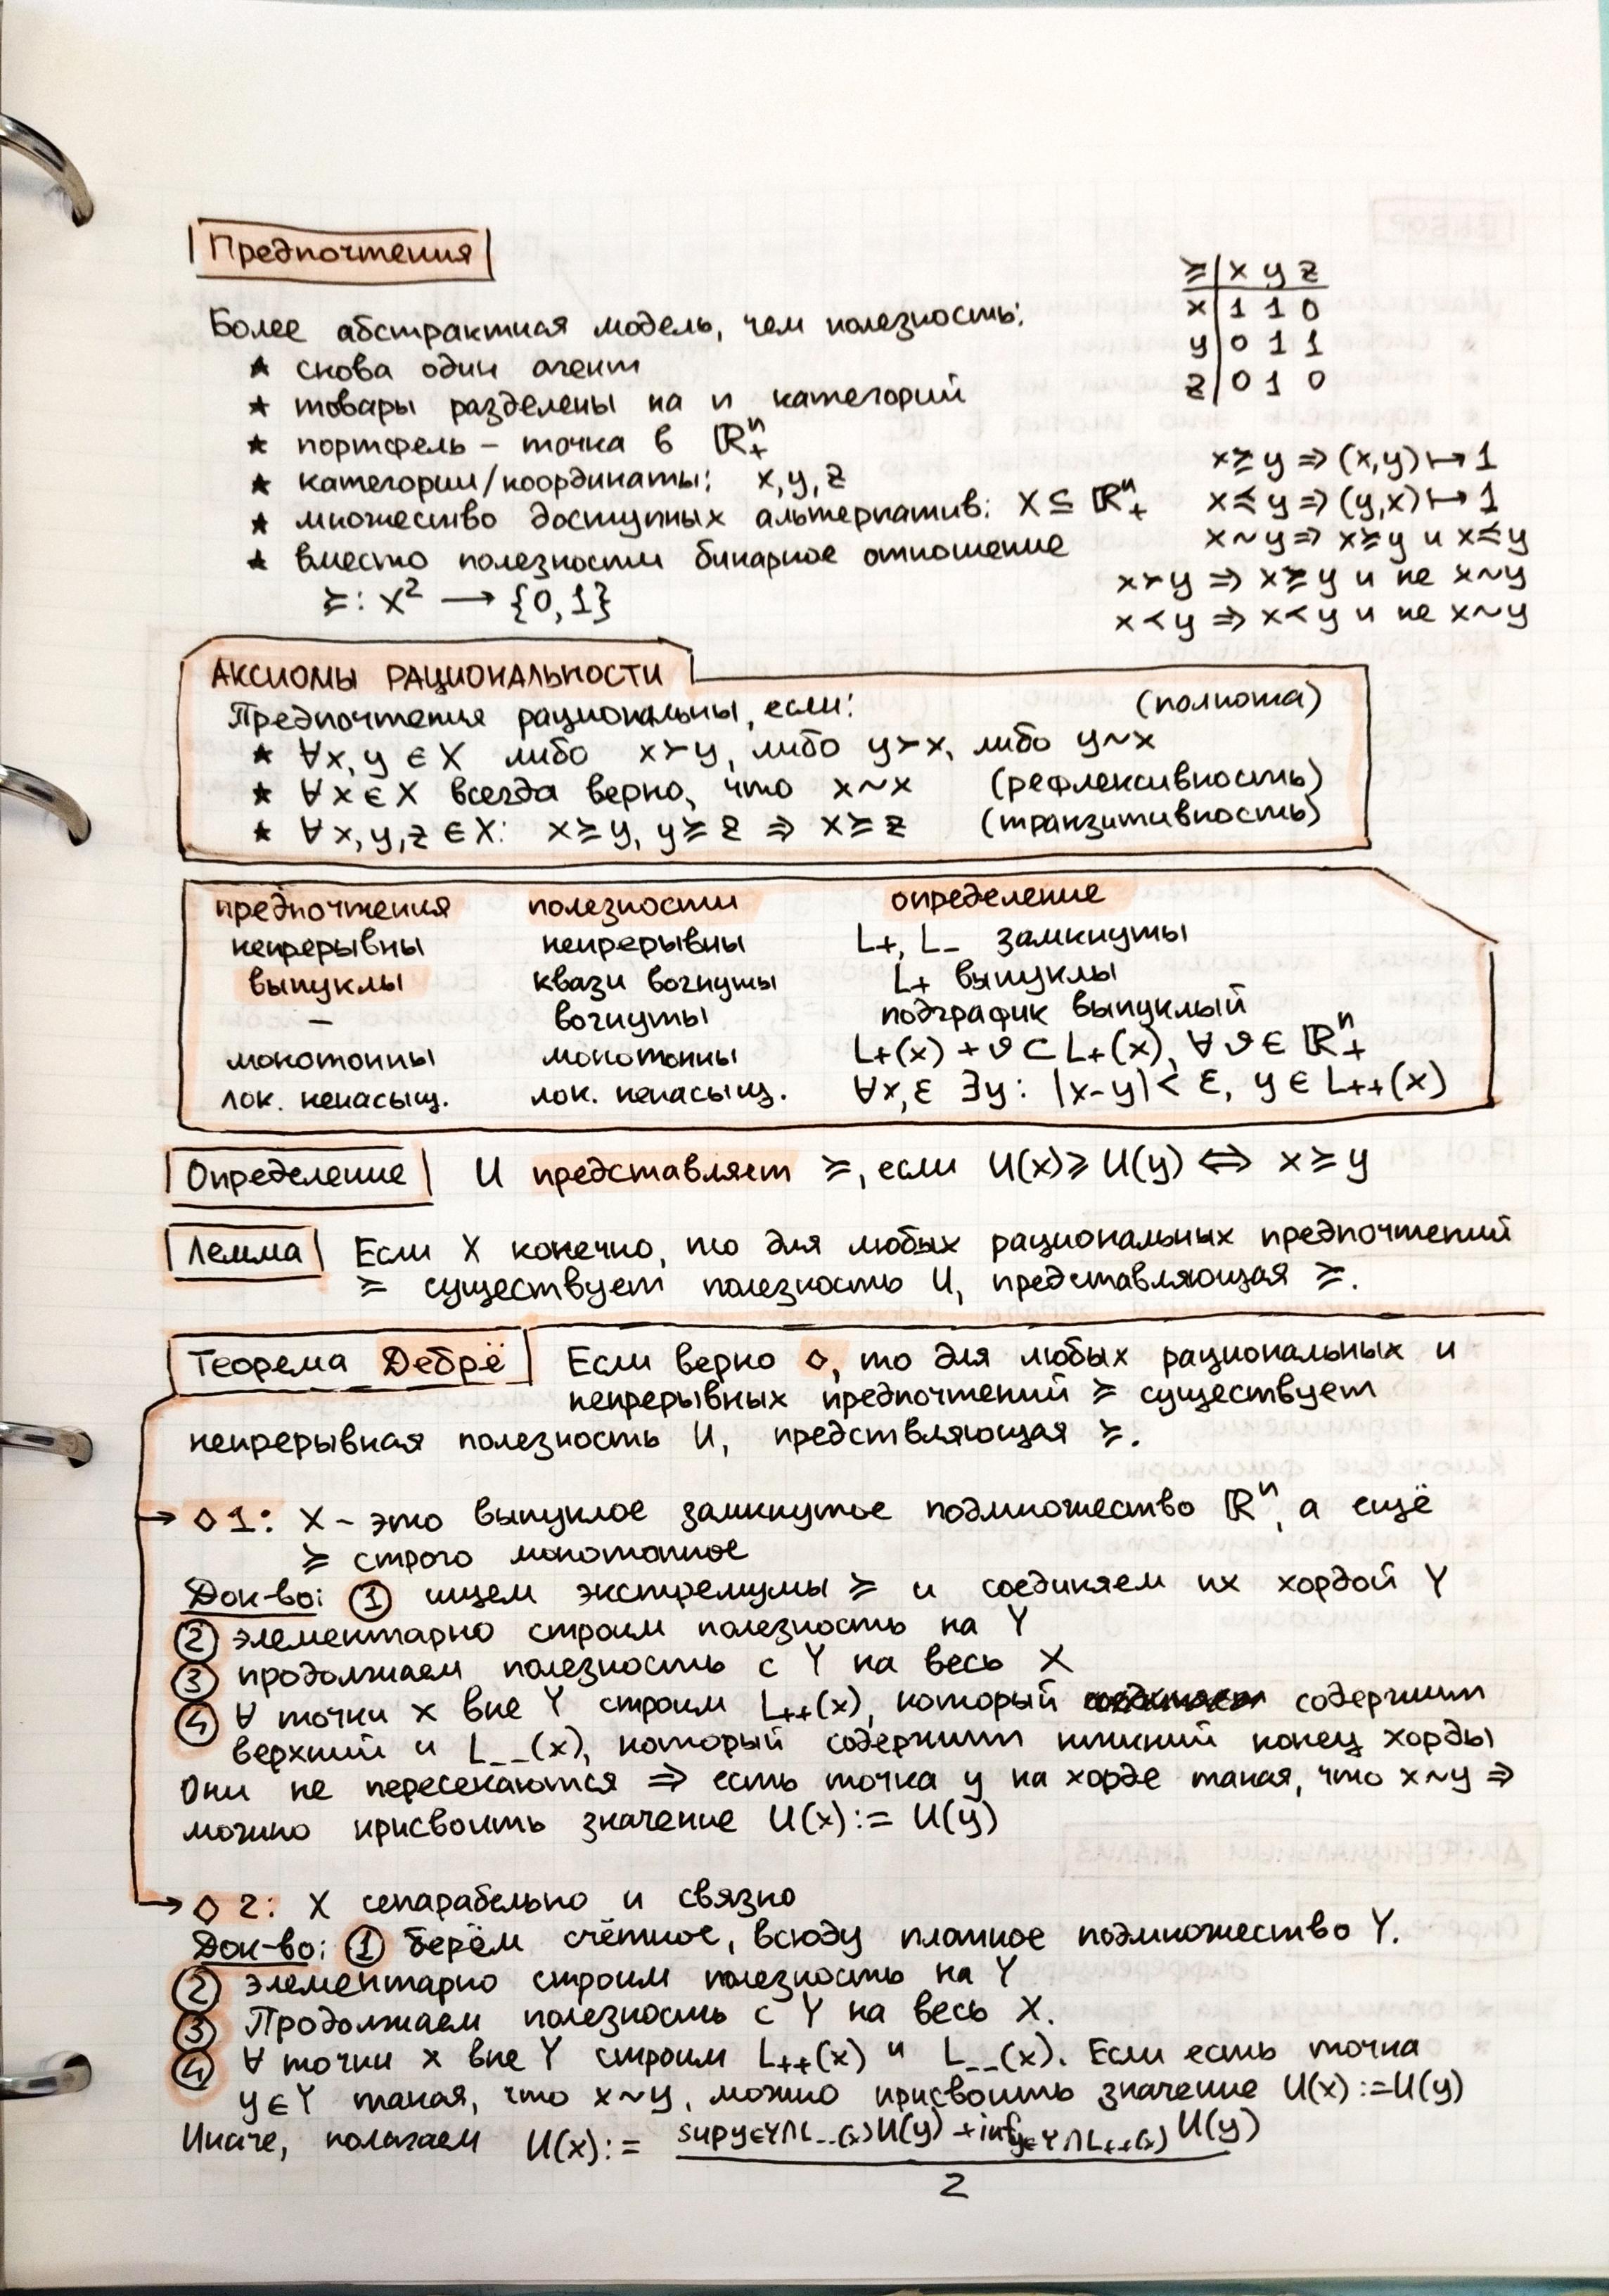 Предпочтения
Более абстрактная модель, чем полезность:
★ снова один агент
★ товары разделены на n категорий
★ портфель – точка в ℝⁿ₊
★ категории/координаты: x, y, z
★ множество доступных альтернатив: X ⊆ ℝⁿ₊
★ вместо полезности бинарное отношение
≽: X² → {0,1}
≽ | x y z
x | 1 1 0
y | 0 1 1
z | 0 1 0
x≽y ⇒ (x,y) ↦ 1
x≼y ⇒ (y,x) ↦ 1
x~y ⇒ x≽y и x≼y
x≻y ⇒ x≽y и не x~y
x≺y ⇒ x≺y и не x~y
АКСИОМЫ РАЦИОНАЛЬНОСТИ
Предпочтения рациональны, если: (полнота)
★ ∀x, y ∈ X либо x≻y, либо y≻x, либо y~x
★ ∀x ∈ X всегда верно, что x~x (рефлексивность)
★ ∀x, y, z ∈ X: x≽y, y≽z ⇒ x≽z (транзитивность)
предпочтения полезности определение
непрерывны непрерывны L₊, L₋ замкнуты
выпуклы квази вогнуты L₊ выпуклы
– вогнуты подграфик выпуклый
монотонны монотонны L₊(x) + υ ⊂ L₊(x), ∀ υ ∈ ℝⁿ₊
лок. ненасыщ. лок. ненасыщ. ∀x, ε ∃y: |x-y| < ε, y ∈ L₊₊(x)
Определение U представляет ≽, если U(x) ≥ U(y) ⇔ x ≽ y
Лемма Если X конечно, то для любых рациональных предпочтений
≽ существует полезность U, представляющая ≽.
Теорема Дебрё Если верно ◇, то для любых рациональных и
непрерывных предпочтений ≽ существует
непрерывная полезность U, предствляющая ≽.
→ ◇ 1: X – это выпуклое замкнутое подмножество ℝⁿ, а ещё
≽ строго монотонное
Док-во: ① ищем экстремумы ≽ и соединяем их хордой Y
② элементарно строим полезность на Y
③ продолжаем полезность с Y на весь X
④ ∀ точки x вне Y строим L₊₊(x), который содержит
верхний и L₋₋(x), который содержит нижний конец хорды
Они не пересекаются ⇒ есть точка y на хорде такая, что x~y ⇒
можно присвоить значение U(x) := U(y)
→ ◇ 2: X сепарабельно и связно
Док-во: ① берём счётное, всюду плотное подмножество Y.
② элементарно строим полезность на Y
③ Продолжаем полезность с Y на весь X.
④ ∀ точки x вне Y строим L₊₊(x) и L₋₋(x). Если есть точка
y ∈ Y такая, что x~y, можно присвоить значение U(x) := U(y)
Иначе, полагаем U(x) := sup y∈Y∩L₋₋(x) U(y) + inf y∈Y∩L₊₊(x) U(y)
2